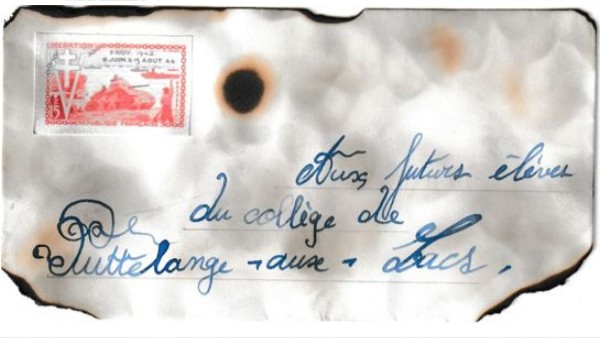 LIBERATION
8 NOV. 1942
6 JUIN & 15 AOUT 44
15F
REPUBLIQUE FRANÇAISE
Aux futurs élèves
du collège de
Puttelange-aux-Lacs,